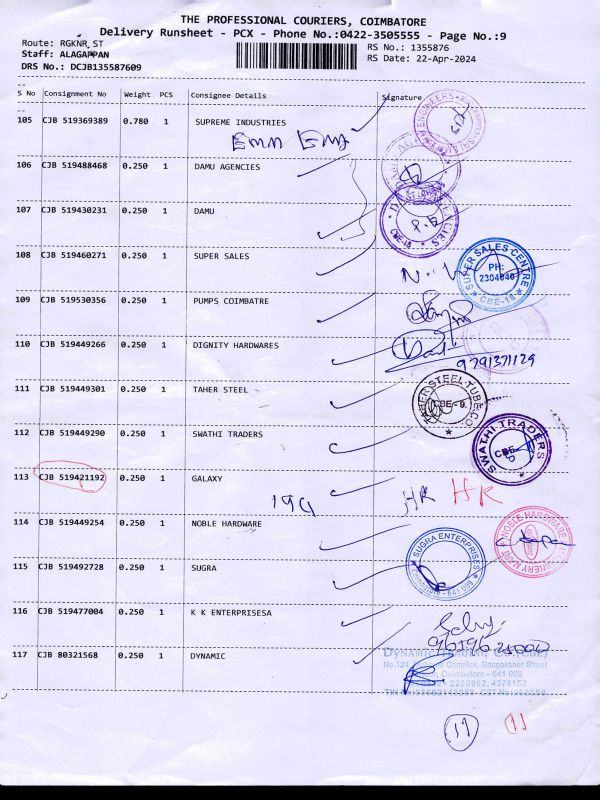 THE PROFESSIONAL COURIERS, COIMBATORE
Delivery Runsheet - PCX - Phone No.:0422-3505555 - Page No.:9
Route: RGKNR_ST
Staff: ALAGAPPAN
DRS No.: DCJB135587609
RS No.: 1355876
RS Date: 22-Apr-2024
S No Consignment No Weight PCS Consignee Details Signature
105 CJB 519369389 0.780 1 SUPREME INDUSTRIES
106 CJB 519488468 0.250 1 DAMU AGENCIES
107 CJB 519430231 0.250 1 DAMU
108 CJB 519460271 0.250 1 SUPER SALES
SUPER SALES CENTRE
PH:
2304040
CBE-18
109 CJB 519530356 0.250 1 PUMPS COIMBATRE
110 CJB 519449266 0.250 1 DIGNITY HARDWARES
9791371129
111 CJB 519449301 0.250 1 TAHER STEEL
TAHER STEEL TUBE CO
CBE-9.
112 CJB 519449290 0.250 1 SWATHI TRADERS
SWATHI TRADERS
CBE
113 CJB 519421192 0.250 1 GALAXY
HR HR
114 CJB 519449254 0.250 1 NOBLE HARDWARE
NOBLE HARDWARE
115 CJB 519492728 0.250 1 SUGRA
SUGRA ENTERPRISES
Coimbatore - 641 009
116 CJB 519477004 0.250 1 K K ENTERPRISESA
117 CJB 80321568 0.250 1 DYNAMIC
DYNAMIC
No.124, Complex, Rangakonar Street
Coimbatore - 641 009
11 11